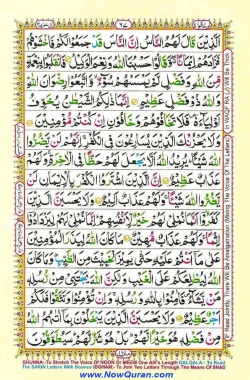 الَّذِينَ قَالَ لَهُمُ النَّاسُ إِنَّ النَّاسَ قَدْ جَمَعُوا لَكُمْ فَاخْشَوْهُمْ
فَزَادَهُمْ إِيمَانًا وَقَالُوا حَسْبُنَا اللَّهُ وَنِعْمَ الْوَكِيلُ فَانْقَلَبُوا بِنِعْمَةٍ
مِنَ اللَّهِ وَفَضْلٍ لَمْ يَمْسَسْهُمْ سُوءٌ وَاتَّبَعُوا رِضْوَانَ
اللَّهِ وَاللَّهُ ذُو فَضْلٍ عَظِيمٍ إِنَّمَا ذَلِكُمُ الشَّيْطٰنُ يُخَوِّفُ
أَوْلِيَاءَهُ فَلَا تَخَافُوهُمْ وَخَافُونِ إِنْ كُنْتُمْ مُؤْمِنِينَ
وَلَا يَحْزُنْكَ الَّذِينَ يُسَارِعُونَ فِي الْكُفْرِ إِنَّهُمْ لَنْ يَضُرُّوا
اللَّهَ شَيْئًا يُرِيدُ اللَّهُ أَلَّا يَجْعَلَ لَهُمْ حَظًّا فِي الْآخِرَةِ وَلَهُمْ
عَذَابٌ عَظِيمٌ إِنَّ الَّذِينَ اشْتَرَوُا الْكُفْرَ بِالْإِيمَانِ لَنْ
يَضُرُّوا اللَّهَ شَيْئًا وَلَهُمْ عَذَابٌ أَلِيمٌ وَلَا يَحْسَبَنَّ الَّذِينَ
كَفَرُوا أَنَّمَا نُمْلِي لَهُمْ خَيْرٌ لِأَنْفُسِهِمْ إِنَّمَا نُمْلِي لَهُمْ لِيَزْدَادُوا
إِثْمًا وَلَهُمْ عَذَابٌ مُهِينٌ مَا كَانَ اللَّهُ لِيَذَرَ الْمُؤْمِنِينَ
عَلَى مَا أَنْتُمْ عَلَيْهِ حَتَّى يَمِيزَ الْخَبِيثَ مِنَ الطَّيِّبِ
وَمَا كَانَ اللَّهُ لِيُطْلِعَكُمْ عَلَى الْغَيْبِ وَلَكِنَّ اللَّهَ يَجْتَبِي مِنْ رُسُلِهِ
مَنْ يَشَاءُ فَآمِنُوا بِاللَّهِ وَرُسُلِهِ وَإِنْ تُؤْمِنُوا وَتَتَّقُوا فَلَكُمْ
أَجْرٌ عَظِيمٌ وَلَا يَحْسَبَنَّ الَّذِينَ يَبْخَلُونَ بِمَا آتَاهُمُ اللَّهُ
مِنْ فَضْلِهِ هُوَ خَيْرًا لَهُمْ بَلْ هُوَ شَرٌّ لَهُمْ سَيُطَوَّقُونَ
GHUNNA:-To Stretch The Voice Of NOON Or MEEM One Alif's Length QALQALA:- To Read
The SAKIN Letters With Bounce IDGHAM:- To Join Two Letters Through The Means Of SHAD
www.NowQuran.com